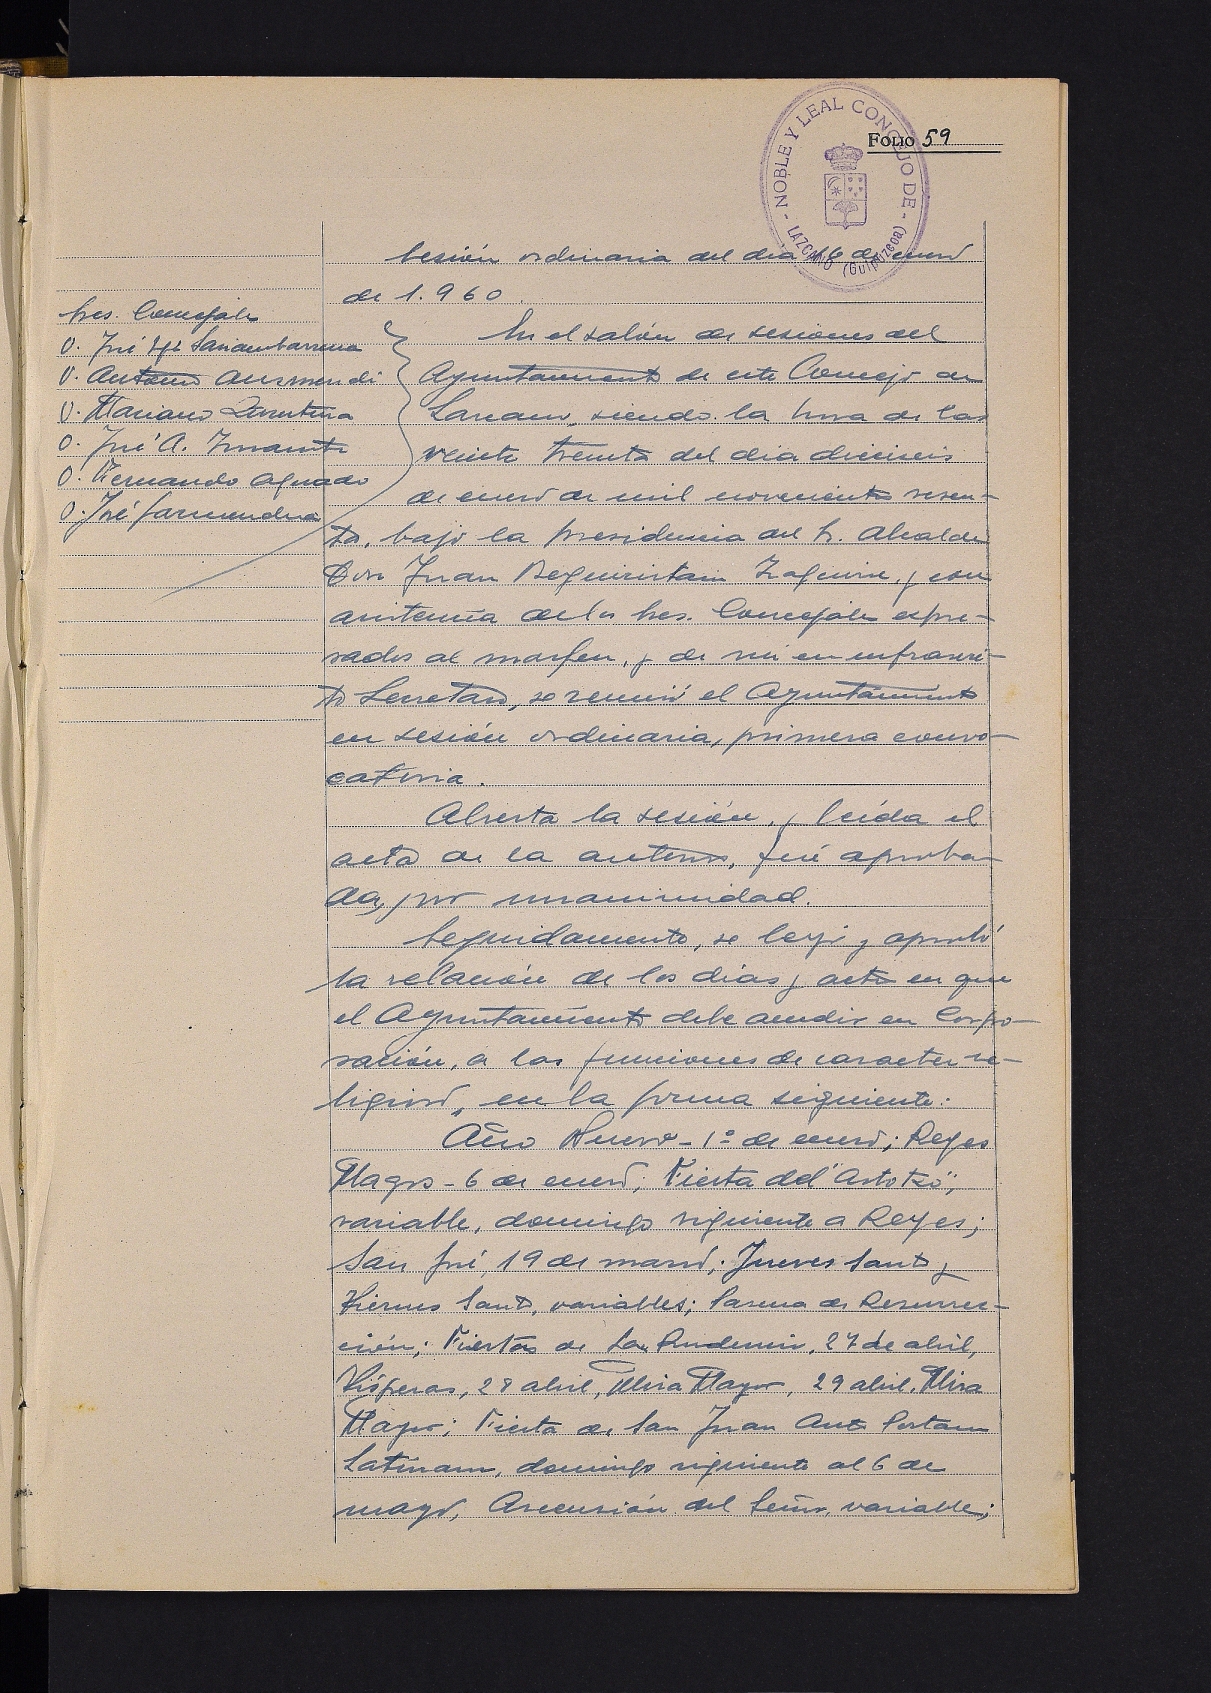 NOBLE Y LEAL CONCEJO DE
LAZCANO (Guipuzcoa)
FOLIO 59
Sesión ordinaria del dia 16 de enero
de 1.960.
Sres. Concejales
D. José Mª
D. Antonio Auzmendi
D. Mariano
D. José A.
D. Fernando Aguado
D. José Garmendia
En el salón de sesiones del
Ayuntamiento de este Concejo de
Lazcano, siendo la hora de las
veinte treinta del dia dieciseis
de enero de mil novecientos sesen-
ta, bajo la presidencia del Sr. Alcalde
Don Juan Beguiristain, y con
asistencia de los Sres. Concejales expre-
sados al margen, y de mi en infrascri-
to Secretario, se reunió el Ayuntamiento
en sesión ordinaria, primera convo-
catoria.
Abierta la sesión, y leída el
acta de la anterior, fué aproba-
da, por unanimidad.
Seguidamente, se leyó y aprobó
la relación de los dias y actos en que
el Ayuntamiento debe acudir en Corpo-
ración, a las funciones de caracter re-
ligioso, en la forma siguiente:
Año Nuevo - 1º de enero; Reyes
Magos - 6 de enero; Fiesta del "Artotxo",
variable, domingo siguiente a Reyes;
San José, 19 de marzo; Jueves Santo y
Viernes Santo, variables; Pascua de Resurrec-
ción; Fiestas de San Prudencio, 27 de abril,
Vísperas, 28 abril, Misa Mayor, 29 abril, Misa
Mayor; Fiesta de San Juan Ante Portam
Latinam, domingo siguiente al 6 de
mayo, Ascensión del Señor, variable;